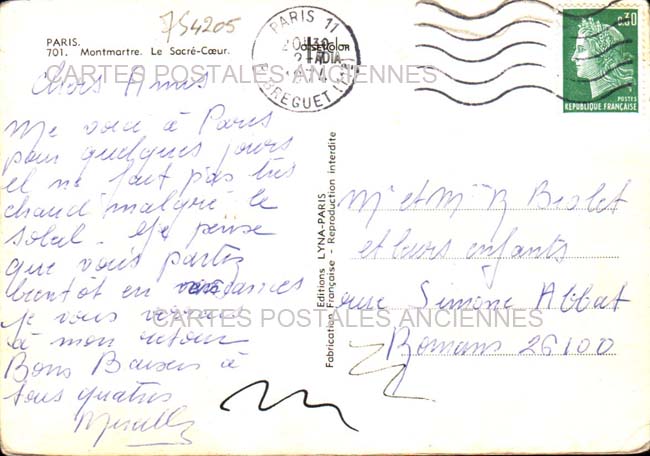 754205
PARIS.
701. Montmartre. Le Sacré-Cœur.
CARTES POSTALES ANCIENNES
Chers Amis
Me voici à Paris
pour quelques jours
il ne fait pas très
chaud malgré le
soleil. Je pense
que vous partez
bientôt en vacances
je vous verrai
à mon retour
Bons Baisers à
tous quatres
Mireille
PARIS 11
BREGUET
0,30
POSTES
REPUBLIQUE FRANÇAISE
Editions LYNA-PARIS
Fabrication Française - Reproduction interdite
Mr et Mme R
et leurs enfants
rue Simone Abbat
Romans 26100
CARTES POSTALES ANCIENNES